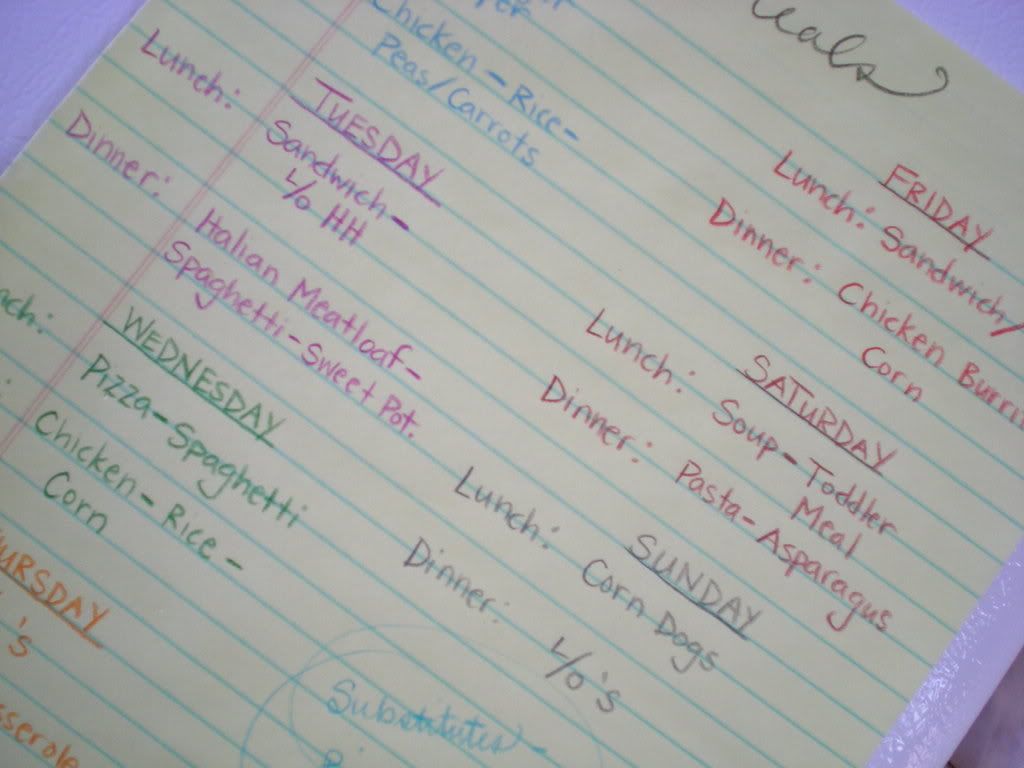 Meals
Chicken - Rice -
Peas/Carrots
TUESDAY
Lunch: Sandwich -
L/O HH
Dinner: Italian Meatloaf -
Spaghetti - Sweet Pot.
WEDNESDAY
Pizza - Spaghetti
Chicken - Rice -
Corn
THURSDAY
's
FRIDAY
Lunch: Sandwich/
Dinner: Chicken
Corn
SATURDAY
Lunch: Soup - Toddler
Meal
Dinner: Pasta - Asparagus
SUNDAY
Lunch: Corn Dogs
Dinner: L/O's
Substitutes -